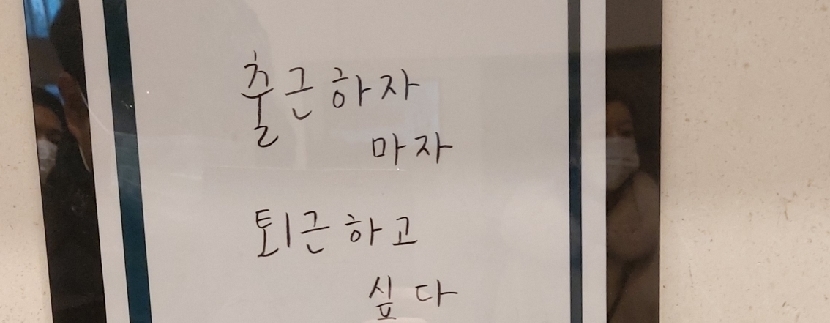 출근하자
마자
퇴근하고
싶다